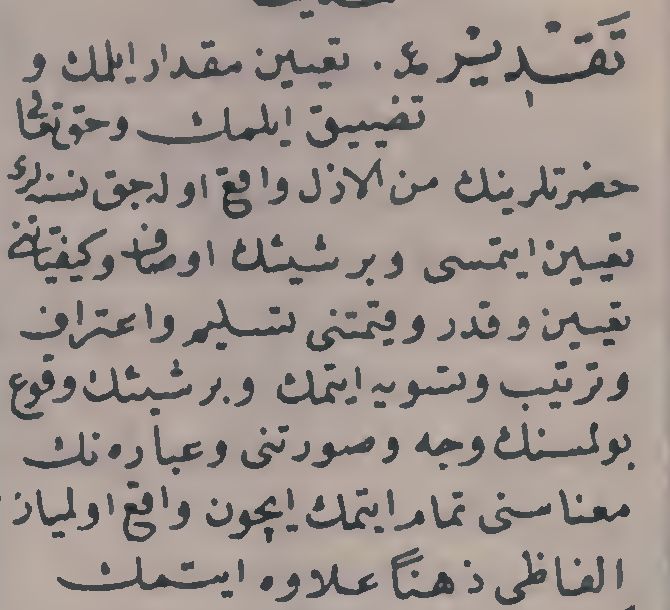 تقدير ع. تعيين مقدار ايلمك و
تضييق ايلمك وحق تعالى
حضرتلرينك من الازل واقع اوله جق نسنه لرى
تعيين ايتمسى وبر شيئك اوصاف وكيفياتنه
تعيين وقدر وقيمتنى تسليم واعتراف
وترتيب وتسويه ايتمك وبر شيئك وقوع
بولمسنك وجه وصورتنى وعباره نك
معناسنى تمام ايتمك ايچون واقع اولميان
الفاظى ذهناً علاوه ايتمك